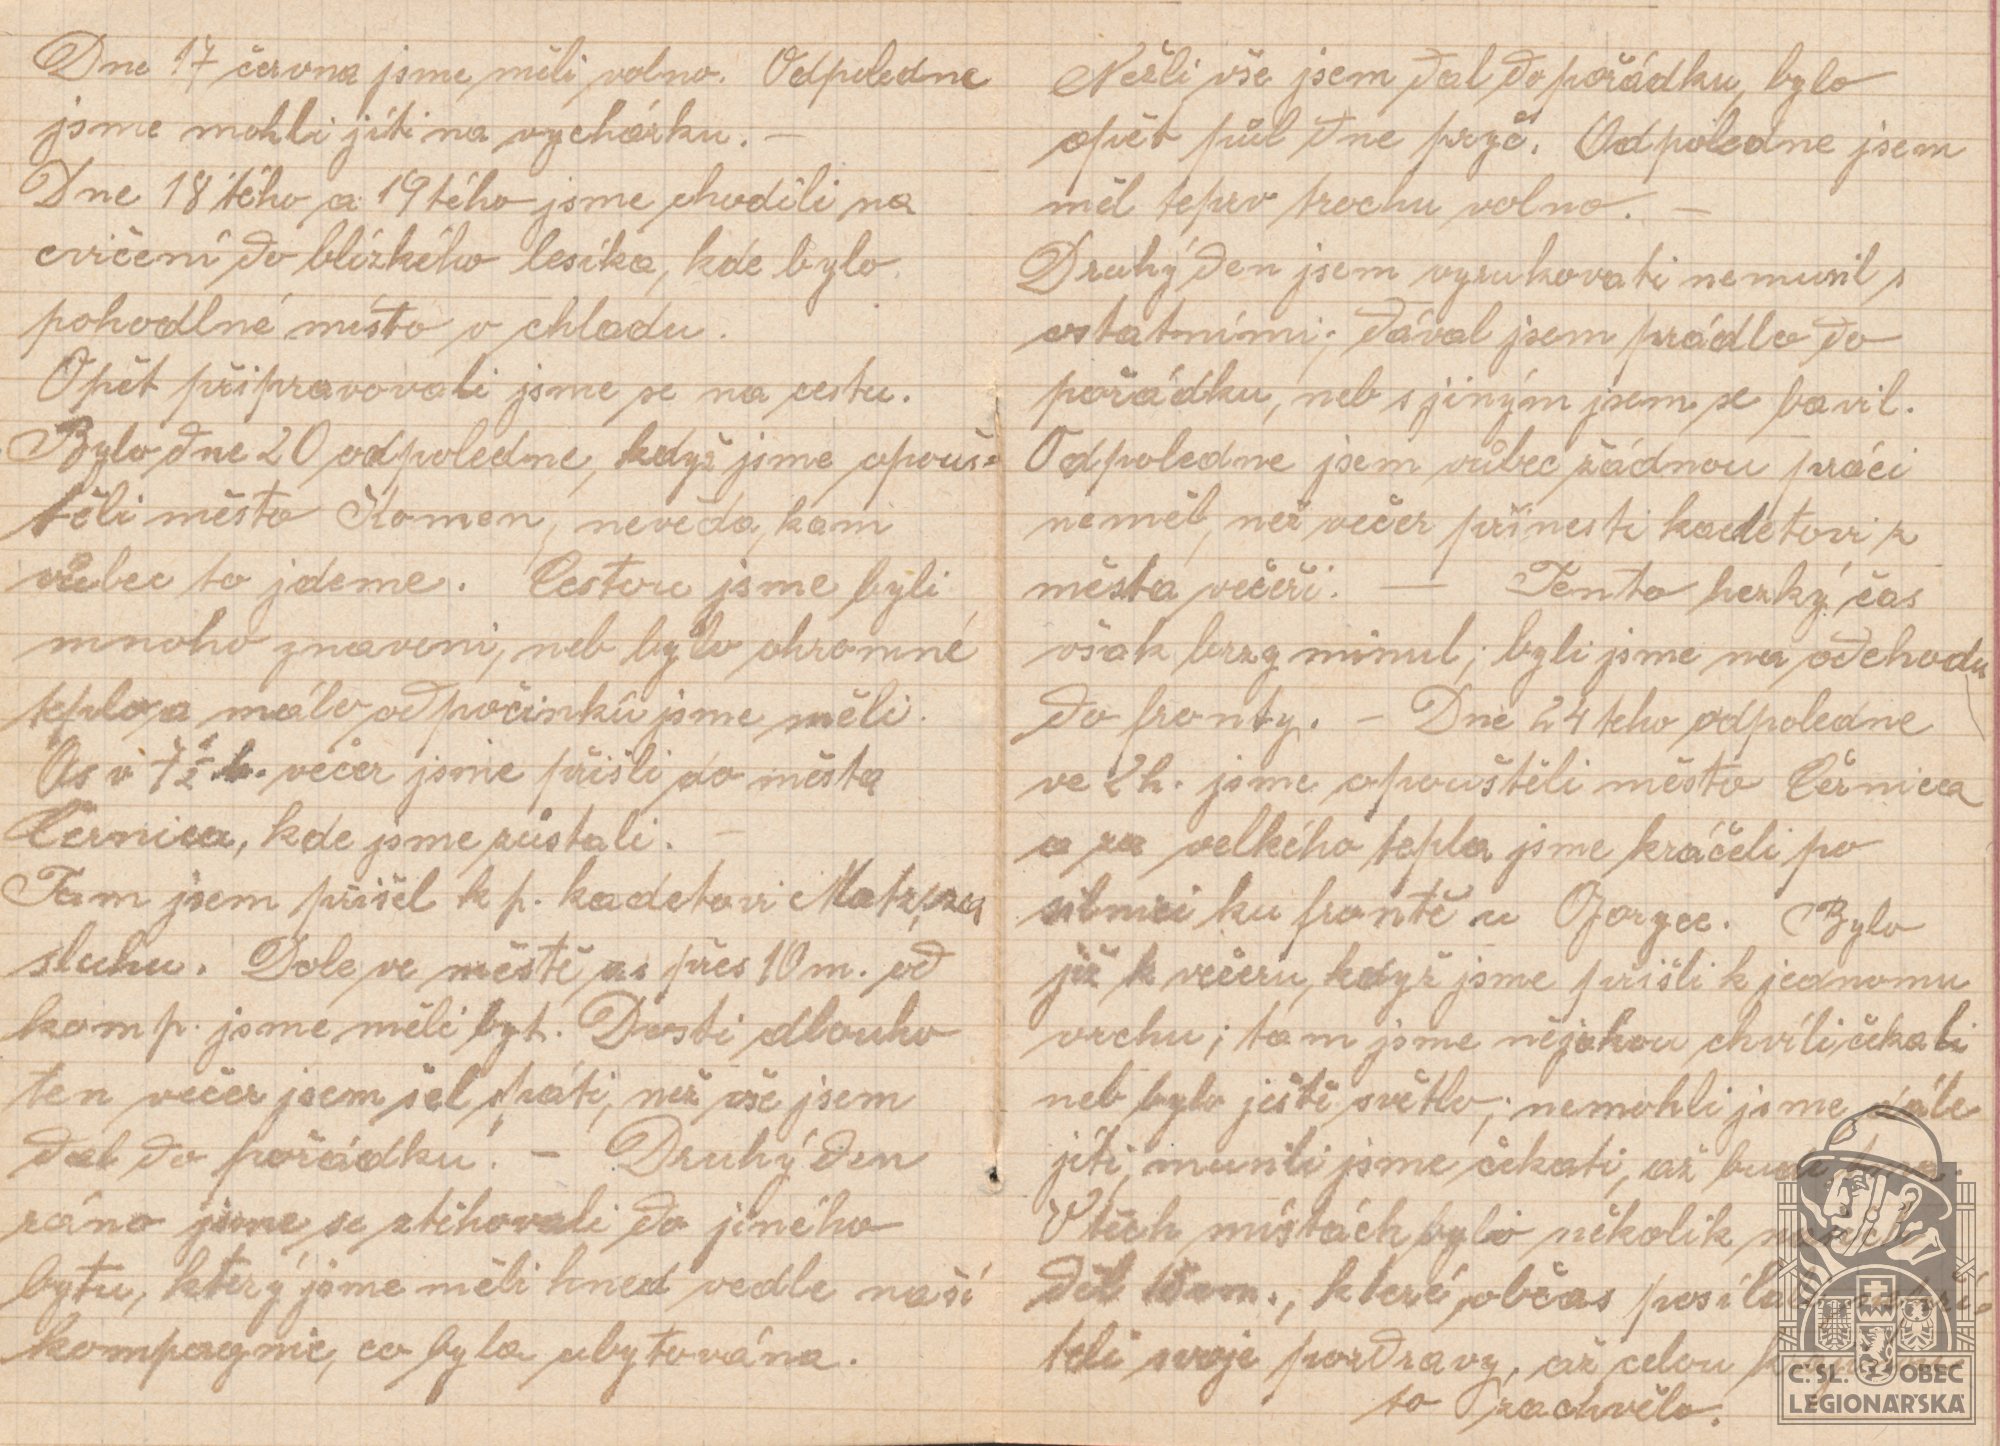 Dne 17 června jsme měli volno. Odpoledne
jsme mohli jíti na vycházku. –
Dne 18 tého a 19 tého jsme chodili na
cvičení do blízkého lesíka, kde bylo
pohodlné místo v chladu.
Opět připravovali jsme se na cestu.
Bylo dne 20 odpoledne, když jsme opouš-
těli město Komen, nevěda, kam
vůbec to jdeme. Cestou jsme byli
mnoho znaveni, neb bylo ohromné
teplo a málo odpočinků jsme měli.
As v 7½ h. večer jsme přišli do města
Černica, kde jsme zůstali. –
Tam jsem přišel k p. kadetovi za
sluhu. Dole ve městě as přes 10 m. od
komp. jsme měli byt. Dosti dlouho
ten večer jsem šel spáti, než vše jsem
dal do pořádku. – Druhý den
ráno jsme se stěhovali do jiného
bytu, který jsme měli hned vedle naší
kompagnie, co byla ubytována.
Nežli vše jsem dal do pořádku, bylo
opět půl dne pryč. Odpoledne jsem
měl teprv trochu volno. –
Druhý den jsem vyrukovati nemusil s
ostatními; dával jsem prádlo do
pořádku, neb s jiným jsem se bavil.
Odpoledne jsem vůbec žádnou práci
neměl, než večer přinesti kadetovi z
města večeři. – Tento hezký čas
však brzy minul; byli jsme na odchodu
do fronty. – Dne 24 teho odpoledne
ve 2 h. jsme opouštěli město Černica
a za velkého tepla jsme kráčeli po
silnici ku frontě u Goryce. Bylo
již k večeru, když jsme přišli k jednomu
vrchu; tam jsme nějakou chvíli čekali
neb bylo ještě světlo; nemohli jsme dále
jíti, musili jsme čekati, až bude tma.
V těch místách bylo několik našich
děl, které občas posílali nepří-
teli svoje pozdravy, až celou
to zachvělo.
Č. SL. OBEC
LEGIONÁŘSKÁ